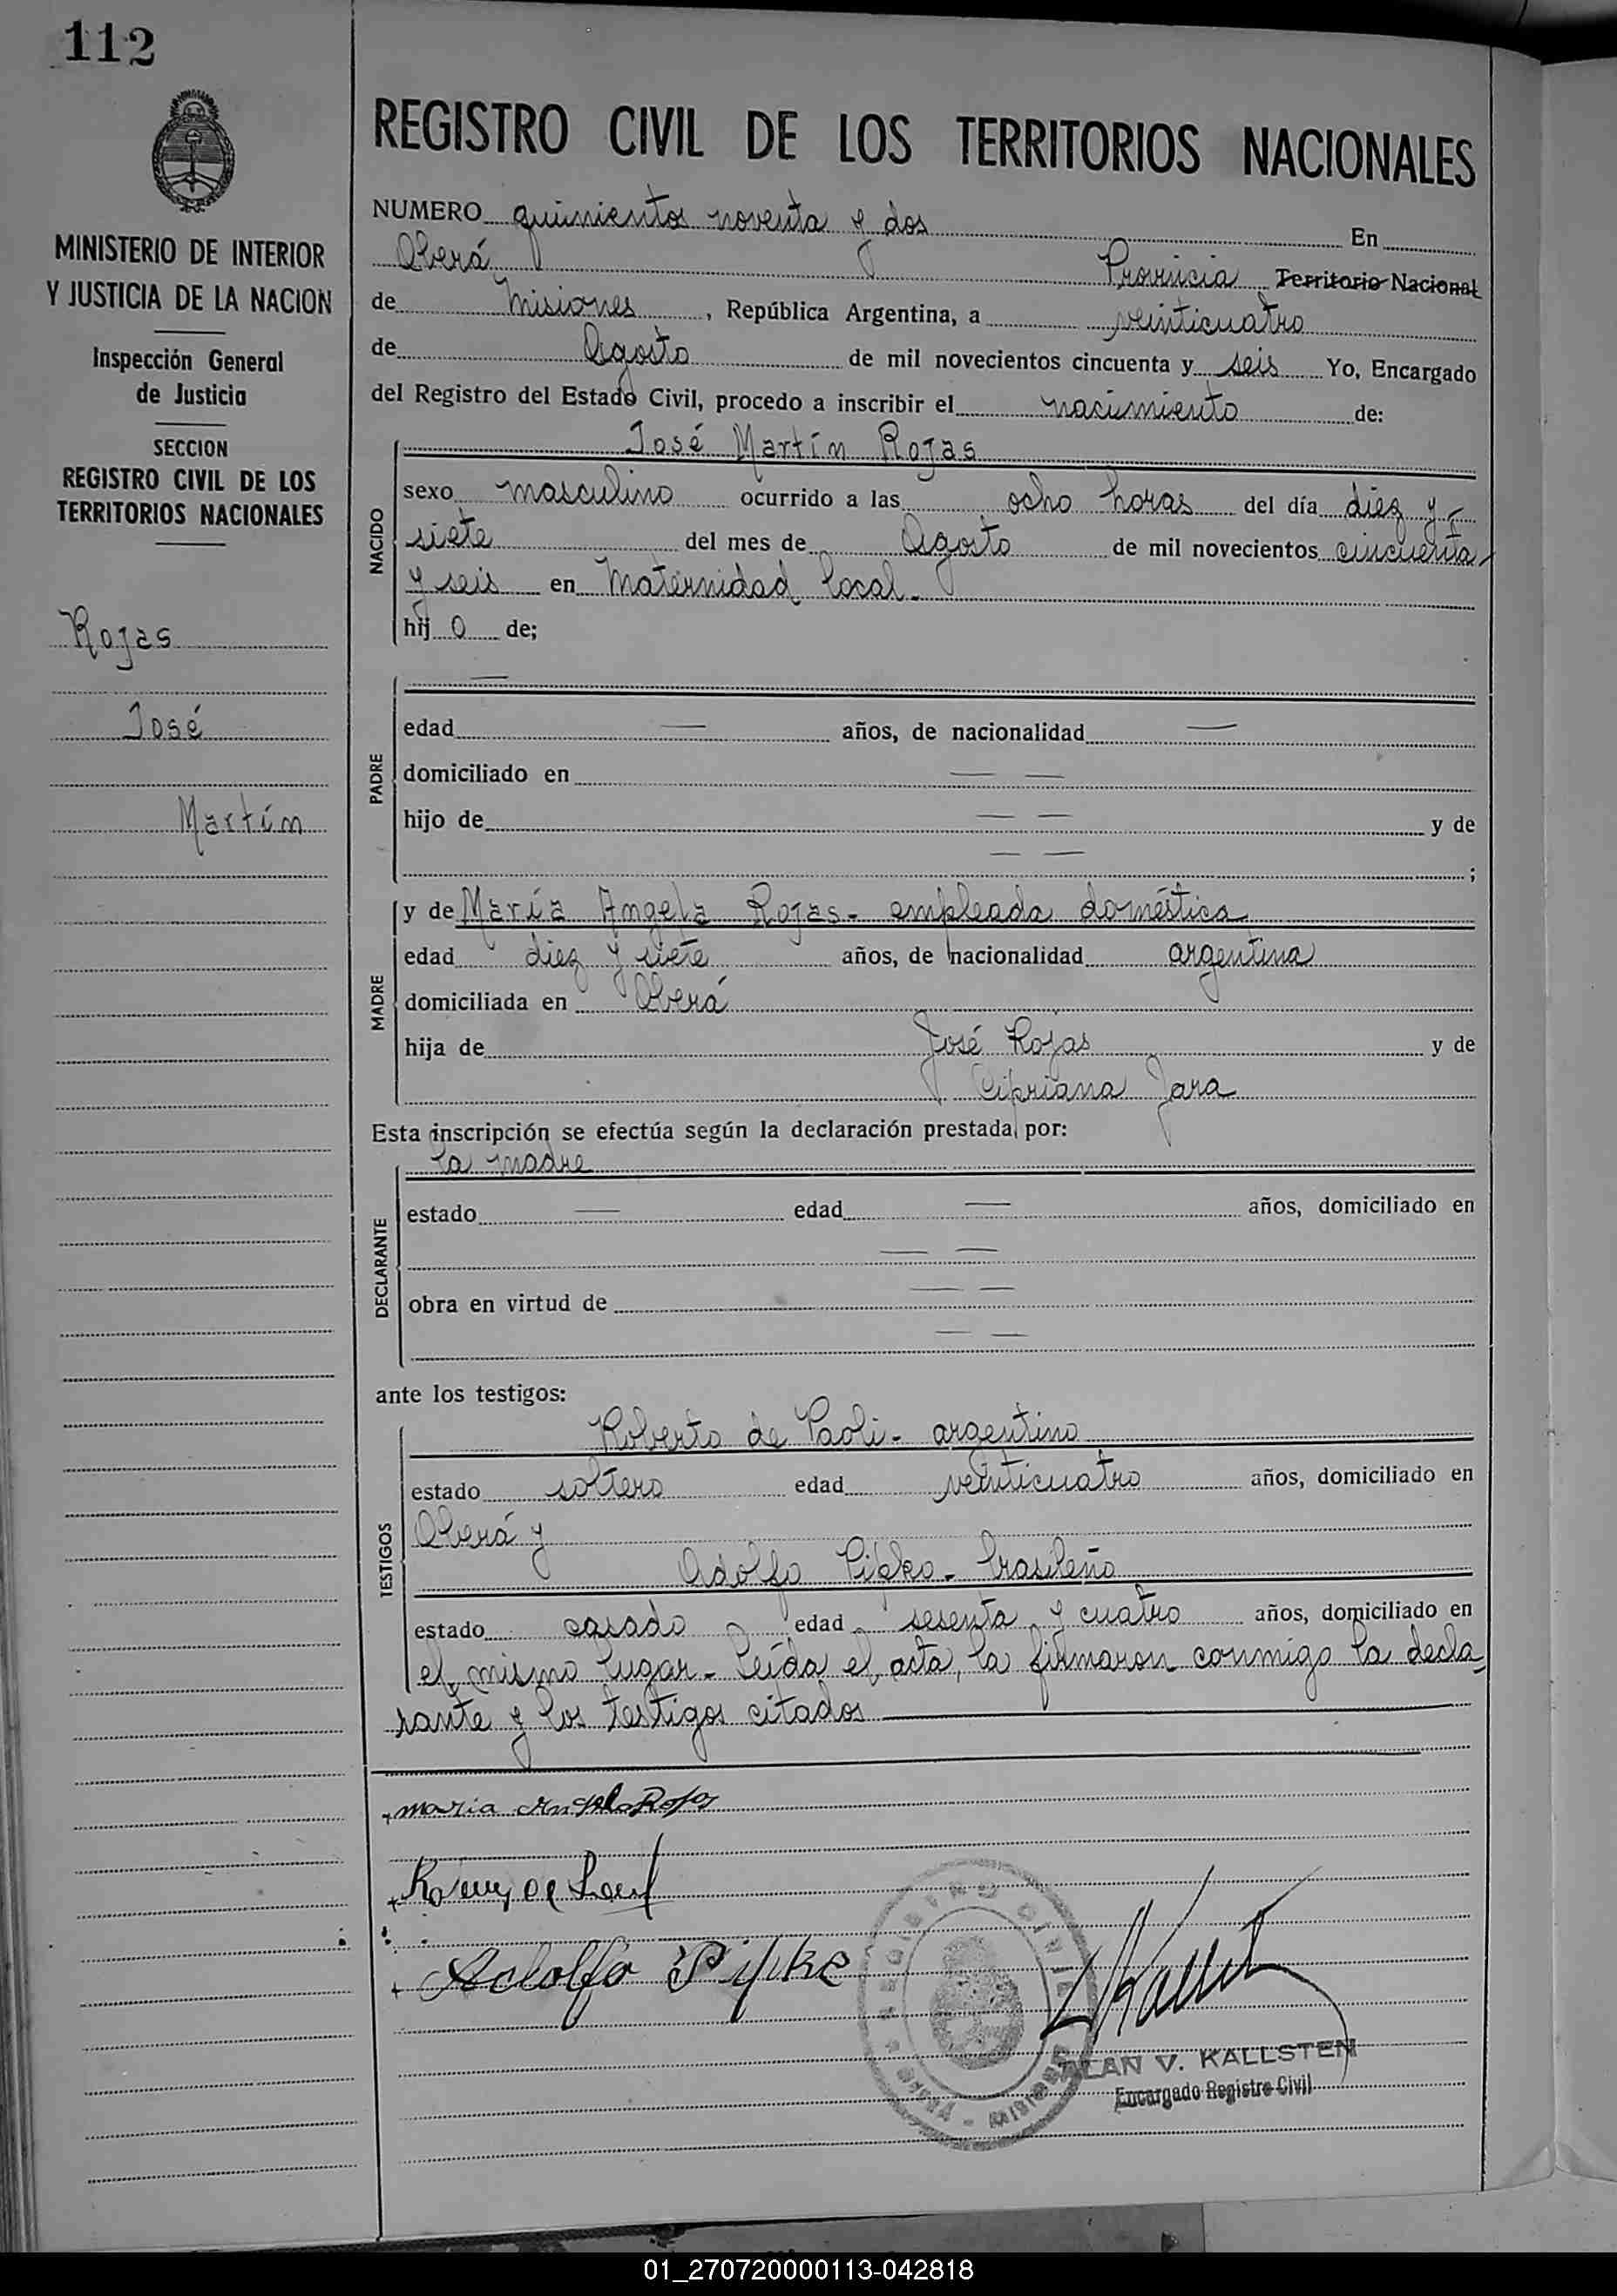 112
MINISTERIO DE INTERIOR
Y JUSTICIA DE LA NACION
Inspección General
de Justicia
SECCION
REGISTRO CIVIL DE LOS
TERRITORIOS NACIONALES
Rojas
José
Martín
REGISTRO CIVIL DE LOS TERRITORIOS NACIONALES
NUMERO quinientos noventa y dos En
Oberá Provincia Territorio Nacional
de Misiones, República Argentina, a veinticuatro
de Agosto de mil novecientos cincuenta y seis Yo, Encargado
del Registro del Estado Civil, procedo a inscribir el nacimiento de:
José Martín Rojas
NACIDO
sexo masculino ocurrido a las ocho horas del día diez y
siete del mes de Agosto de mil novecientos cincuenta
y seis en Maternidad local.
hij o de;
PADRE
edad — años, de nacionalidad —
domiciliado en — —
hijo de — — y de
— — ;
MADRE
y de María Angela Rojas - empleada doméstica
edad diez y siete años, de nacionalidad argentina
domiciliada en Oberá
hija de José Rojas y de
Cipriana Jara
Esta inscripción se efectúa según la declaración prestada por:
la madre
DECLARANTE
estado — edad — años, domiciliado en
— —
obra en virtud de — —
— —
ante los testigos:
TESTIGOS
Roberto de Paoli - argentino
estado soltero edad veinticuatro años, domiciliado en
Oberá y
Adolfo Pipke - brasileño
estado casado edad sesenta y cuatro años, domiciliado en
el mismo lugar - Leída el acta, la firmaron conmigo la decla-
rante y los testigos citados
Maria Angela Rojas
Adolfo Pipke
REGISTRO CIVIL
OBERA - MISIONES
OLAN V. KALLSTEN
Encargado Registro Civil
01_270720000113-042818